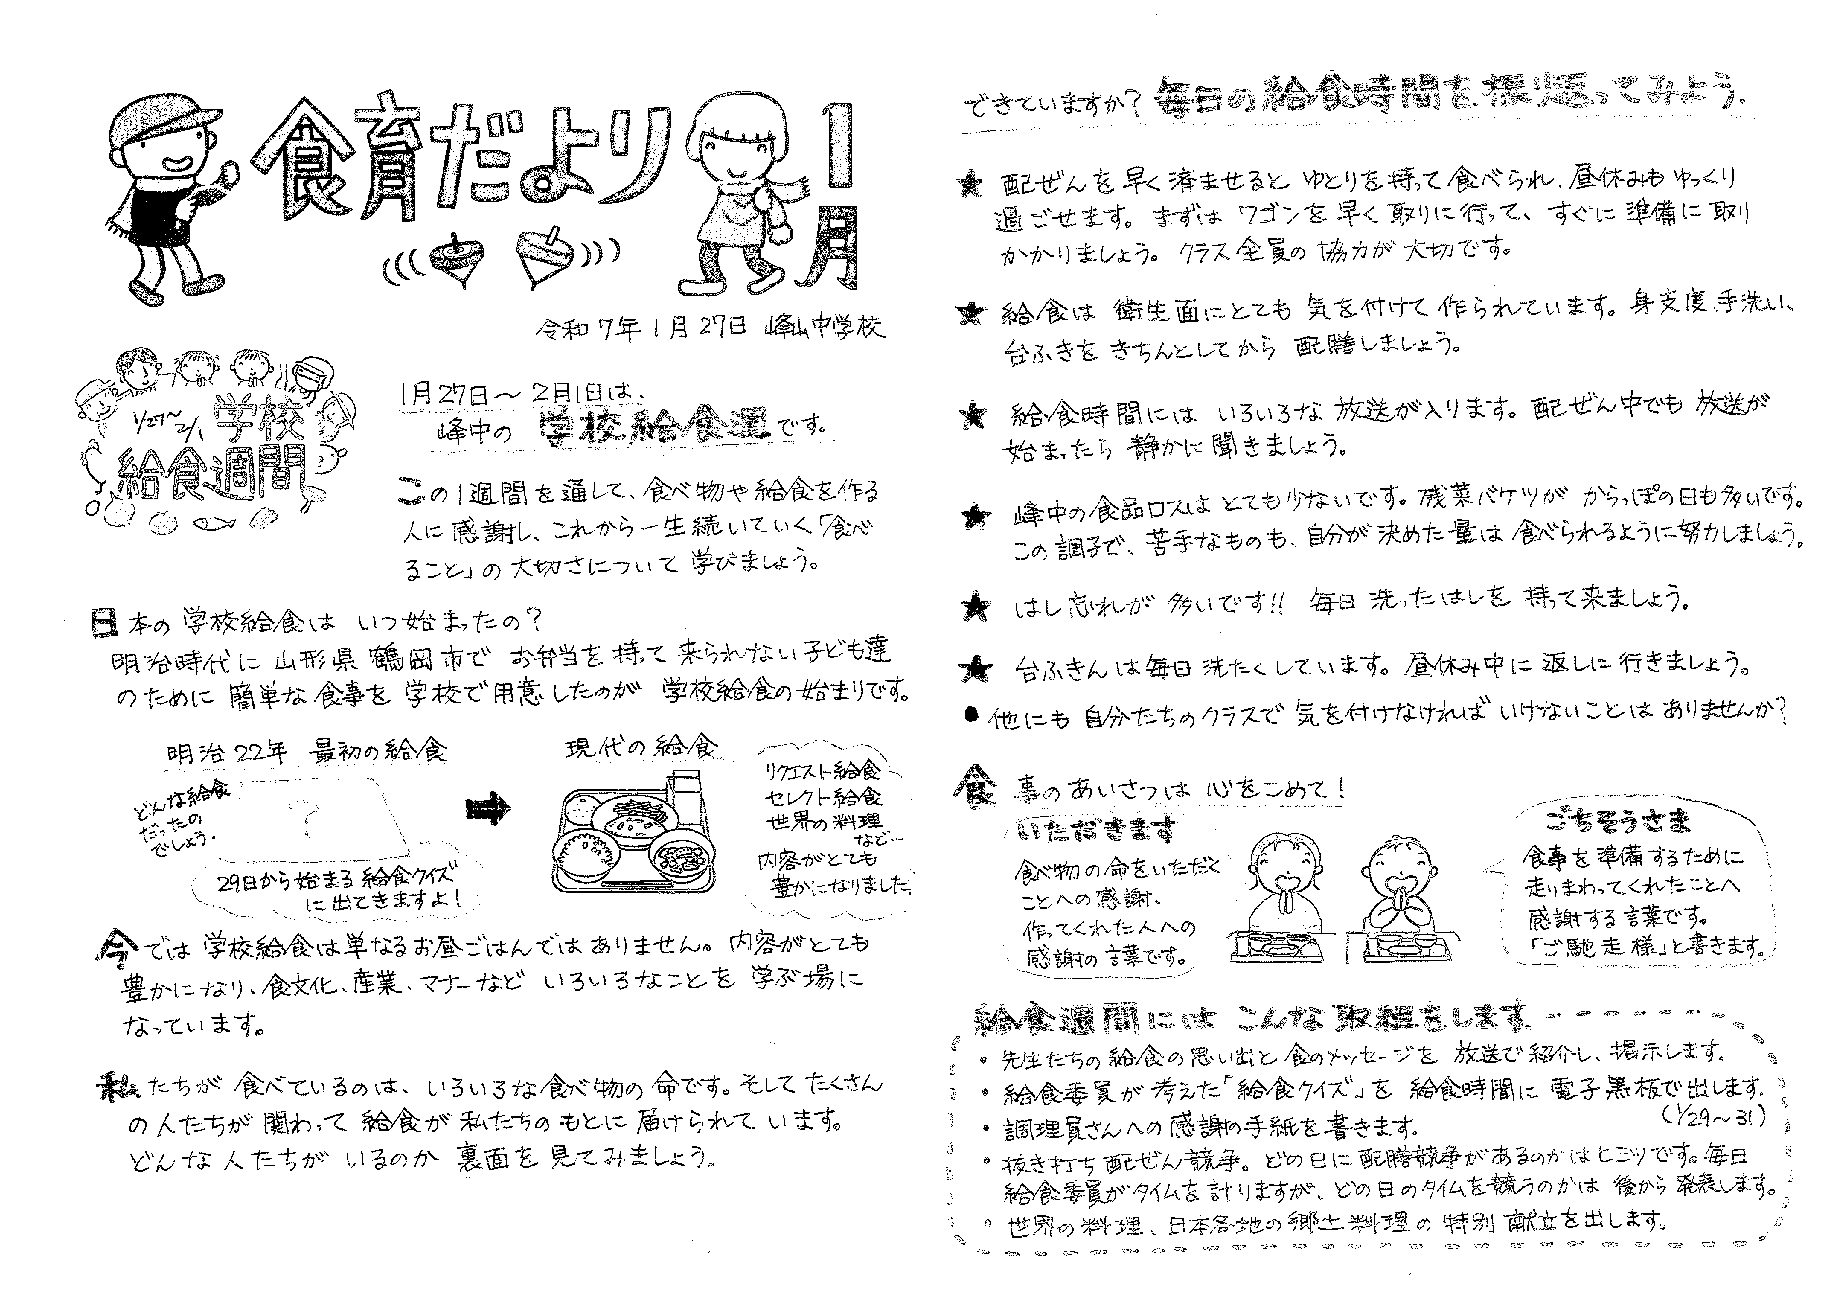 食育だより
1月
令和7年1月27日 峰山中学校
1/27〜2/1 学校
給食週間
1月27日〜2月1日は、
峰中の 学校給食週です。
この1週間を通して、食べ物や給食を作る
人に感謝し、これから一生続いていく「食べ
ること」の大切さについて学びましょう。
日本の学校給食は いつ始まったの?
明治時代に山形県鶴岡市で お弁当を持って来られない子ども達
のために簡単な食事を学校で用意したのが 学校給食の始まりです。
明治22年 最初の給食
どんな給食
だったの
でしょう。
?
29日から始まる給食クイズ
に出てきますよ!
現代の給食
リクエスト給食
セレクト給食
世界の料理
など…
内容がとても
豊かになりました。
今では学校給食は単なるお昼ごはんではありません。内容がとても
豊かになり、食文化、産業、マナーなど いろいろなことを学ぶ場に
なっています。
私たちが食べているのは、いろいろな食べ物の命です。そしてたくさん
の人たちが関わって給食が私たちのもとに届けられています。
どんな人たちがいるのか裏面を見てみましょう。
できていますか? 毎日の給食時間を振り返ってみよう.
★ 配ぜんを早く済ませると ゆとりを持って食べられ、昼休みもゆっくり
過ごせます。まずはワゴンを早く取りに行って、すぐに準備に取り
かかりましょう。クラス全員の協力が大切です。
★ 給食は衛生面にとても気を付けて作られています。身支度、手洗い、
台ふきをきちんとしてから配膳しましょう。
★ 給食時間には いろいろな放送が入ります。配ぜん中でも放送が
始まったら静かに聞きましょう。
★ 峰中の食品ロスはとても少ないです。残菜バケツがからっぽの日も多いです。
この調子で、苦手なものも、自分が決めた量は食べられるように努力しましょう。
★ はし忘れが多いです!! 毎日洗ったはしを持って来ましょう。
★ 台ふきんは毎日洗たくしています。昼休み中に返しに行きましょう。
● 他にも自分たちのクラスで気を付けなければいけないことはありませんか?
食事のあいさつは 心をこめて!
いただきます
食べ物の命をいただく
ことへの感謝、
作ってくれた人への
感謝の言葉です。
ごちそうさま
食事を準備するために
走りまわってくれたことへ
感謝する言葉です。
「ご馳走様」と書きます。
給食週間には こんな取組をします
・先生たちの給食の思い出と食のメッセージを放送で紹介し、掲示します。
・給食委員が考えた「給食クイズ」を給食時間に電子黒板で出します。
(1/29〜31)
・調理員さんへの感謝の手紙を書きます。
・抜き打ち配ぜん競争。どの日に配膳競争があるのかはヒミツです。毎日
給食委員がタイムを計りますが、どの日のタイムを競うのかは後から発表します。
・世界の料理、日本各地の郷土料理の特別献立を出します。